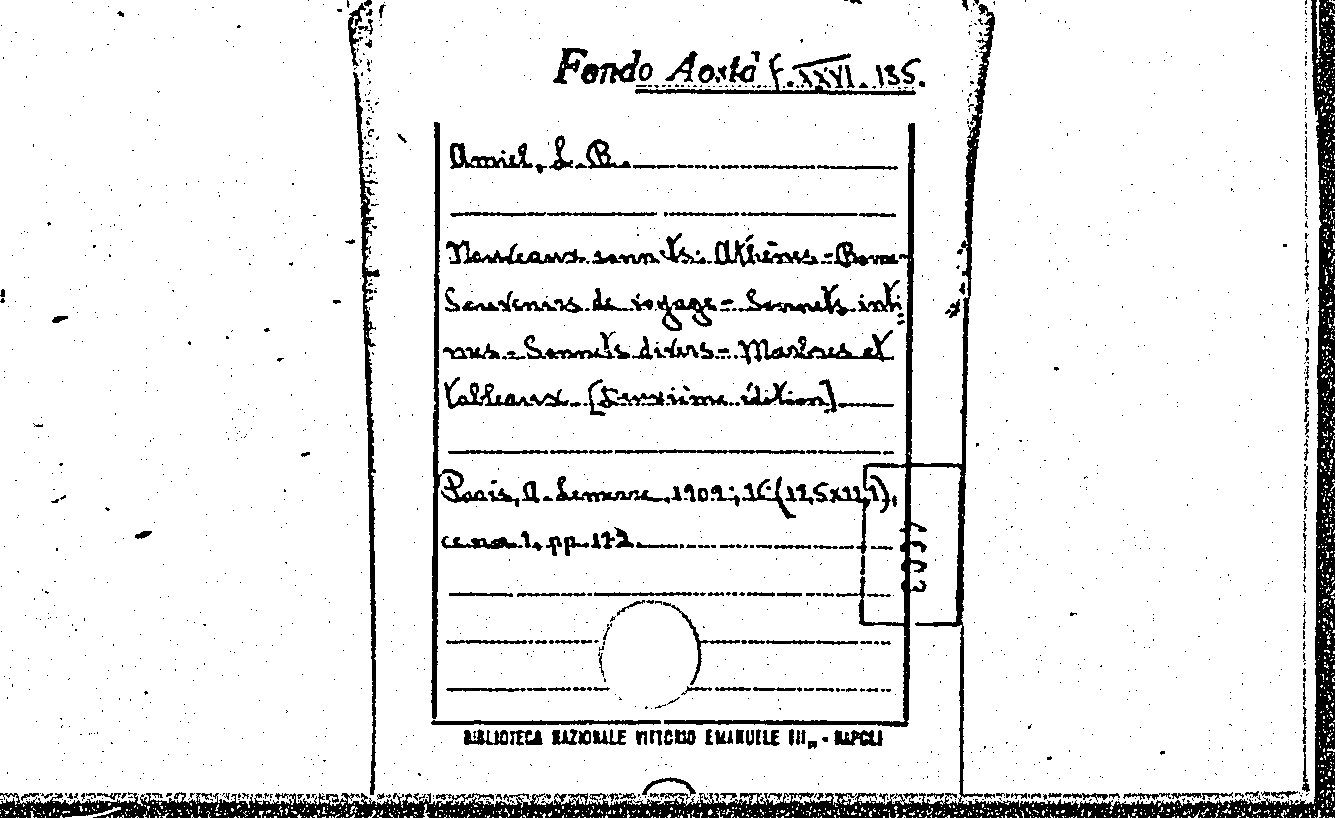 Fondo Aosta F. XXVI. 135.
Amiel, L. B.
Nouveaux sonnets: Athènes - Rome -
Souvenirs de voyage - Sonnets inti
mes - Sonnets divers - Marbres et
tableaux (Deuxième édition)
Paris, A. Lemerre, 1909; 16°
cc. nn. 1, pp. 172.
BIBLIOTECA NAZIONALE VITTORIO EMANUELE III„ - NAPOLI